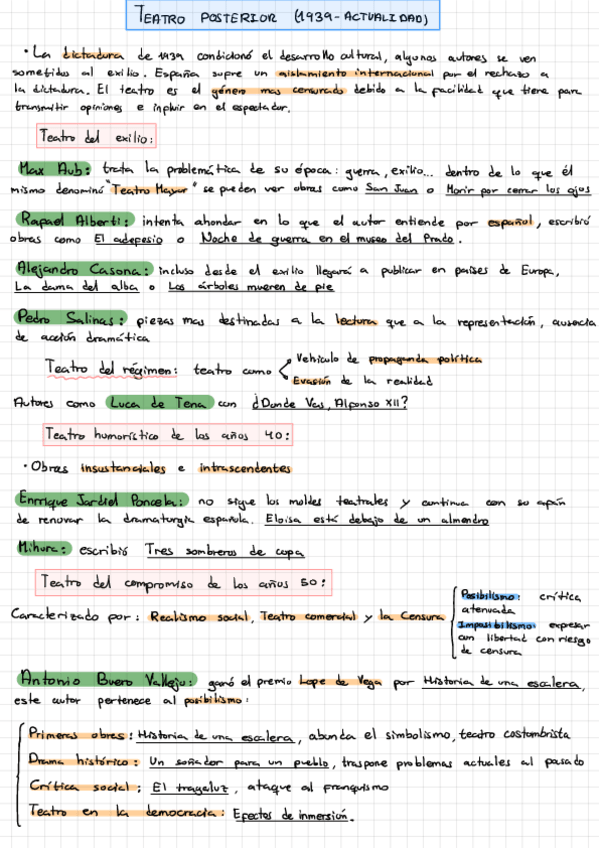 TEATRO POSTERIOR (1939-ACTUALIDAD)
· La dictadura de 1939 condicionó el desarrollo cultural, algunos autores se ven
sometidos al exilio. España supre un aislamiento internacional por el rechazo a
la dictadura. El teatro es el género mas censurado debido a la facilidad que tiene para
transmitir opiniones e influir en el espectador.
Teatro del exilio:
Max Aub: trata la problemática de su época: guerra, exilio... dentro de lo que él
mismo denominó "Teatro Mayor" se pueden ver obras como San Juan o Morir por cerrar los ojos
Rafael Alberti: intenta ahondar en lo que el autor entiende por español, escribió
obras como El adefesio o Noche de guerra en el museo del Prado.
Alejandro Casona: incluso desde el exilio llegará a publicar en países de Europa,
La dama del alba o Los árboles mueren de pie
Pedro Salinas: piezas mas destinadas a la lectura que a la representación, ausencia
de acción dramática
Teatro del régimen: teatro como < Vehiculo de propaganda política
Evasión de la realidad
Autores como Luca de Tena con ¿Donde Vas, Alfonso XII?
Teatro humorístico de los años 40:
· Obras insustanciales e intrascendentes
Enrrique Jardiel Poncela: no sigue los moldes teatrales y continua con su afán
de renovar la dramaturgia española. Eloisa está debajo de un almendro
Mihura: escribió Tres sombreros de copa
Teatro del compromiso de los años 50:
Caracterizado por: Realismo social, Teatro comercial y la Censura
Posibilismo: crítica
atenuada
Imposibilismo: expresar
con libertad con riesgo
de censura
Antonio Buero Vallejo: ganó el premio Lope de Vega por Historia de una escalera,
este autor pertenece al posibilismo:
Primeras obras: Historia de una escalera, abunda el simbolismo, teatro costumbrista
Drama histórico: Un soñador para un pueblo, traspone problemas actuales al pasado
Crítica social: El tragaluz, ataque al franquismo
Teatro en la democracia: Efectos de inmersión.